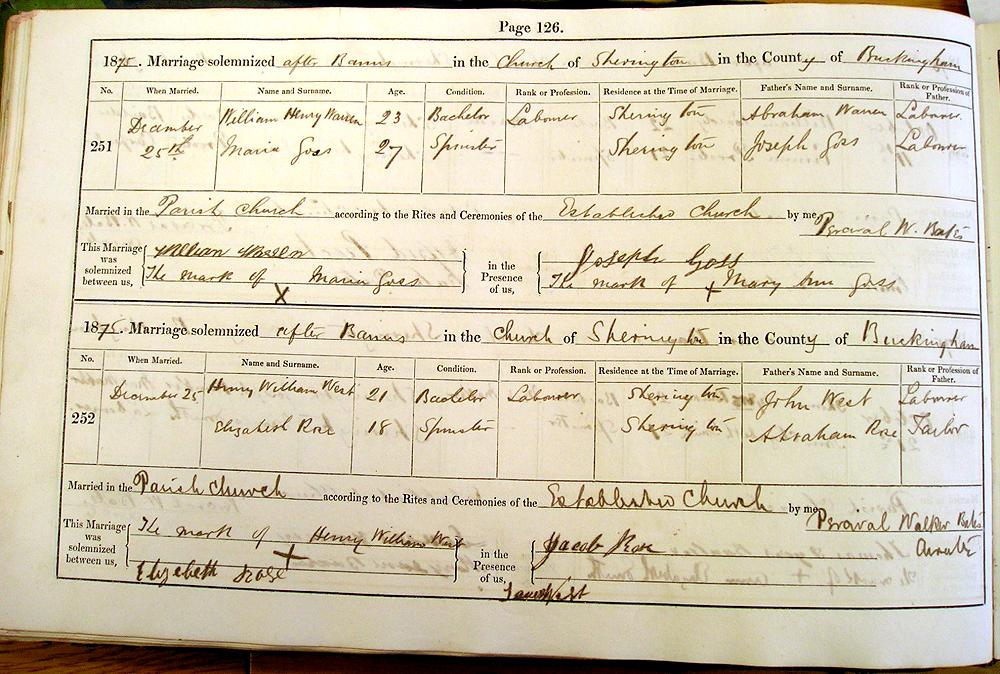 Page 126.
1875. Marriage solemnized after Banns in the Church of Sherington in the County of Buckingham
No. When Married. Name and Surname. Age. Condition. Rank or Profession. Residence at the Time of Marriage. Father's Name and Surname. Rank or Profession of Father.
William Henry Warren 23 Bachelor Labourer Sherington Abraham Warren Labourer
December
251 25th Maria Goss 27 Spinster Sherington Joseph Goss Labourer
Married in the Parish Church according to the Rites and Ceremonies of the Established Church by me Percival W. Bates
This Marriage was solemnized between us, William
The mark of X Maria Goss
in the Presence of us, Joseph Goss
The mark of + Mary Ann Goss
1875. Marriage solemnized after Banns in the Church of Sherington in the County of Buckingham
No. When Married. Name and Surname. Age. Condition. Rank or Profession. Residence at the Time of Marriage. Father's Name and Surname. Rank or Profession of Father.
December 25 Henry William West 21 Bachelor Labourer Sherington John West Labourer
252 Elizabeth Rose 18 Spinster Sherington Abraham Rose Taylor
Married in the Parish Church according to the Rites and Ceremonies of the Established Church by me Percival Walker Bates
Curate
This Marriage was solemnized between us, The mark of + Henry William West
Elizebeth Rose
in the Presence of us, Jacob Rose
West